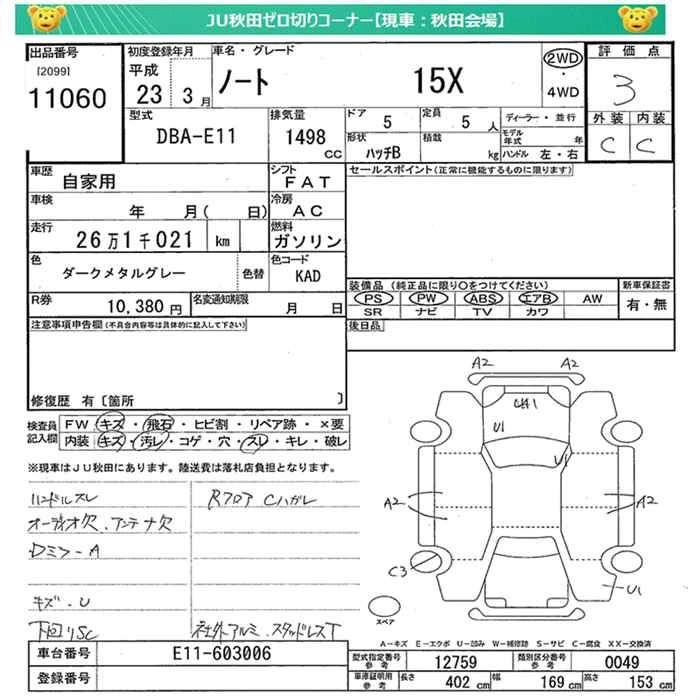 JU秋田ゼロ切りコーナー【現車：秋田会場】
出品番号
[2099]
11060
初度登録年月
平成
23 3月
車名・グレード
ノート 15X
2WD
・
4WD
評価点
3
外装 内装
C C
型式
DBA-E11
排気量
1498
CC
ドア
5
定員
5人
形状
ハッチB
積載
kg
ディーラー・並行
モデル年式 年
ハンドル 左・右
車歴
自家用
シフト
FAT
車検
年 月( 日)
冷房
AC
走行
26万1千021 km
燃料
ガソリン
色
ダークメタルグレー
色替
色コード
KAD
R券
10,380円
名変通知期限
月 日
セールスポイント(正常に機能するものに限ります)
装備品 (純正品に限り○をつけてください)
PS PW ABS エアB AW
SR ナビ TV カワ
新車保証書
有・無
後日品
注意事項申告欄(不具合内容等は具体的に記入して下さい)
修復歴 有〔箇所 〕
検査員記入欄
FW キズ・飛石・ヒビ割・リペア跡・×要
内装 キズ・汚レ・コゲ・穴・スレ・キレ・破レ
※現車はJU秋田にあります。陸送費は落札店負担となります。
ハンドルスレ
オーディオ欠.アンテナ欠
Dミラ-A
キズ.U
下回りSC
Rフロア Cハガレ
社外アルミ.スタッドレスT
A2 A2
U1
U1
A2 A2
C3
U1
スペア
A－キズ E－エクボ U－凹み W－補修跡 S－サビ C－腐食 XX－交換済
車台番号
E11-603006
登録番号
型式指定番号 参考
12759
類別区分番号 参考
0049
車庫証明用 参考
長さ 402 cm
幅 169 cm
高さ 153 cm